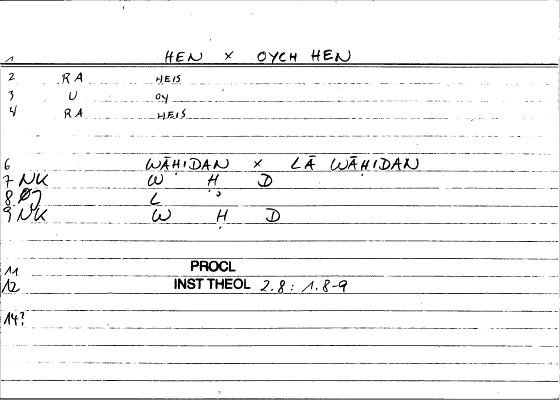 1 HEN × OYCH HEN
2 RA HEIS
3 U OY
4 RA HEIS
6 WĀḤIDAN × LĀ WĀḤIDAN
7 NK W Ḥ D
8 07 L
9 NK W Ḥ D
11 PROCL
12 INST THEOL 2.8: 1.8-9
14?